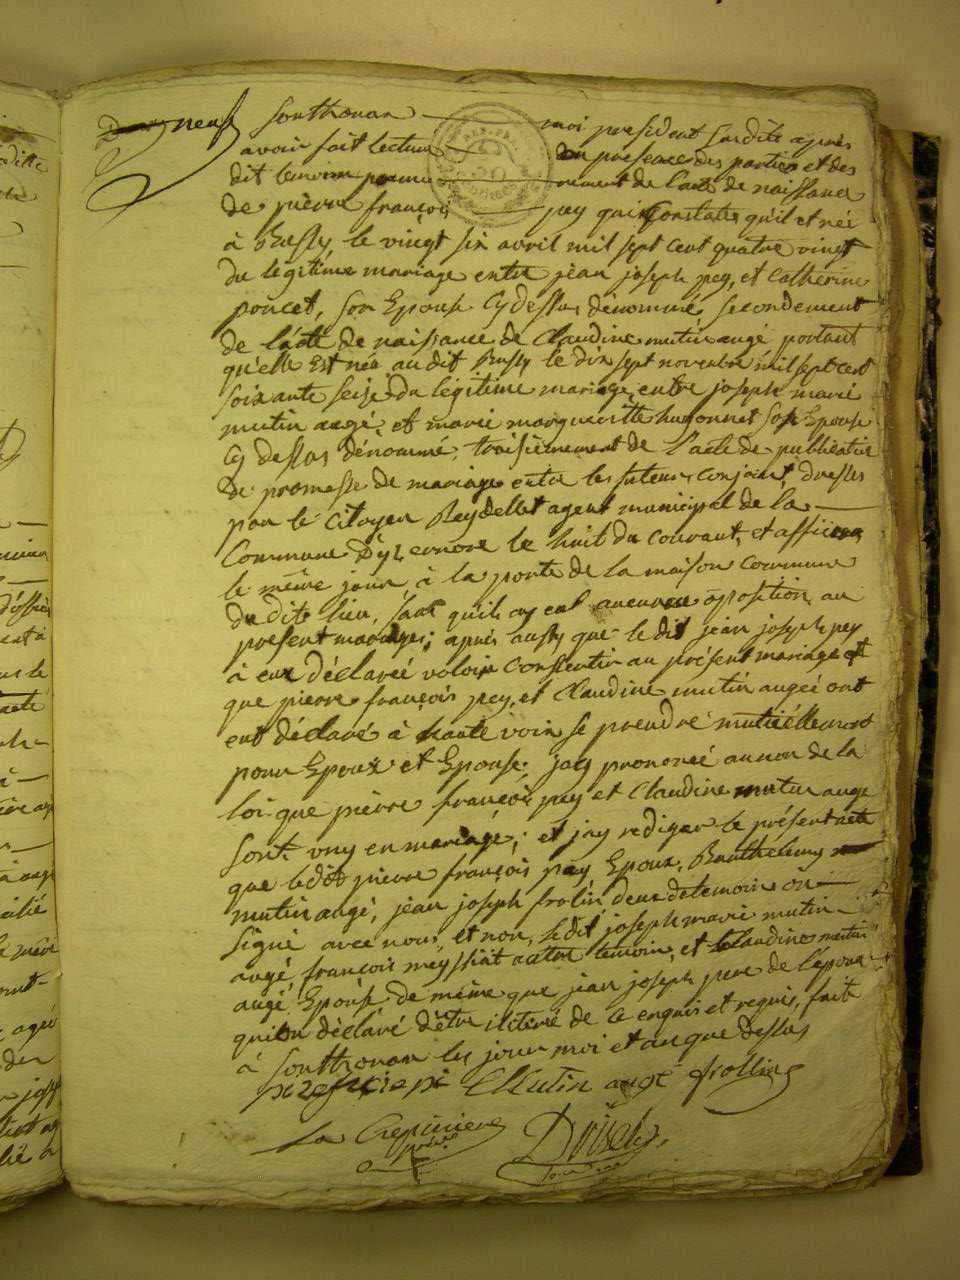 neuf Sonthonan moi president susdite après
avoir fait lecture en presence des parties et des
dit temoin premierement de l'acte de naissance
de pierre françois pey qui constate qu'il et née
à Bussy le vingt six avril mil sept cent quatre vingt
du legitime mariage entre jean joseph pey, et Catherine
poncet, son Epouse Cy dessus dénommé, secondement
de l'acte de naissance de Claudine mutin augé portant
qu'elle Est née au dit Bussy le dix sept novembre mil sept cent
soixante seize du légitime mariage entre joseph marie
mutin augé, et marie margueritte hugonnet son Epouse
Cy dessus dénommé, troisièmement de l'acte de publication
de promesse de mariage entre les futeurs conjoint, dresses
par le Citoyen Reydellet agent municipal de la
Commune D'yzernore le huit du courant, et afficher
le même jour à la porte de la maison Commune
du dite lieu, sans qu'il ay eut aucunne oposition au
present mariages; après aussy que le dit jean joseph pey
à eut déclaré voloir consentir au présent mariage et
que pierre françois pey, et Claudine mutin augeé ont
eut déclaré à haute voix se prendre mutiéllement
pour Epoux et Epouse. jay prononcé au nom de la
loi que pierre françois pey et Claudine mutin augé
sont uny en mariage; et jay rediger le présent acte
que ledit pierre françois pey Epoux, Barthelemy
mutin augé, jean joseph frolin deux de temoin on
signé avec nous, et non, le dit joseph marie mutin
augé, françois meyssiat autre temoin, et Claudine mutin
augé Epouse de même que jean joseph pere de l'époux
qui on déclaré d'être iliteré de ce enquis et requis, fait
à Sonthonan les jour moi et an que dessus
B Mutin augé frollin